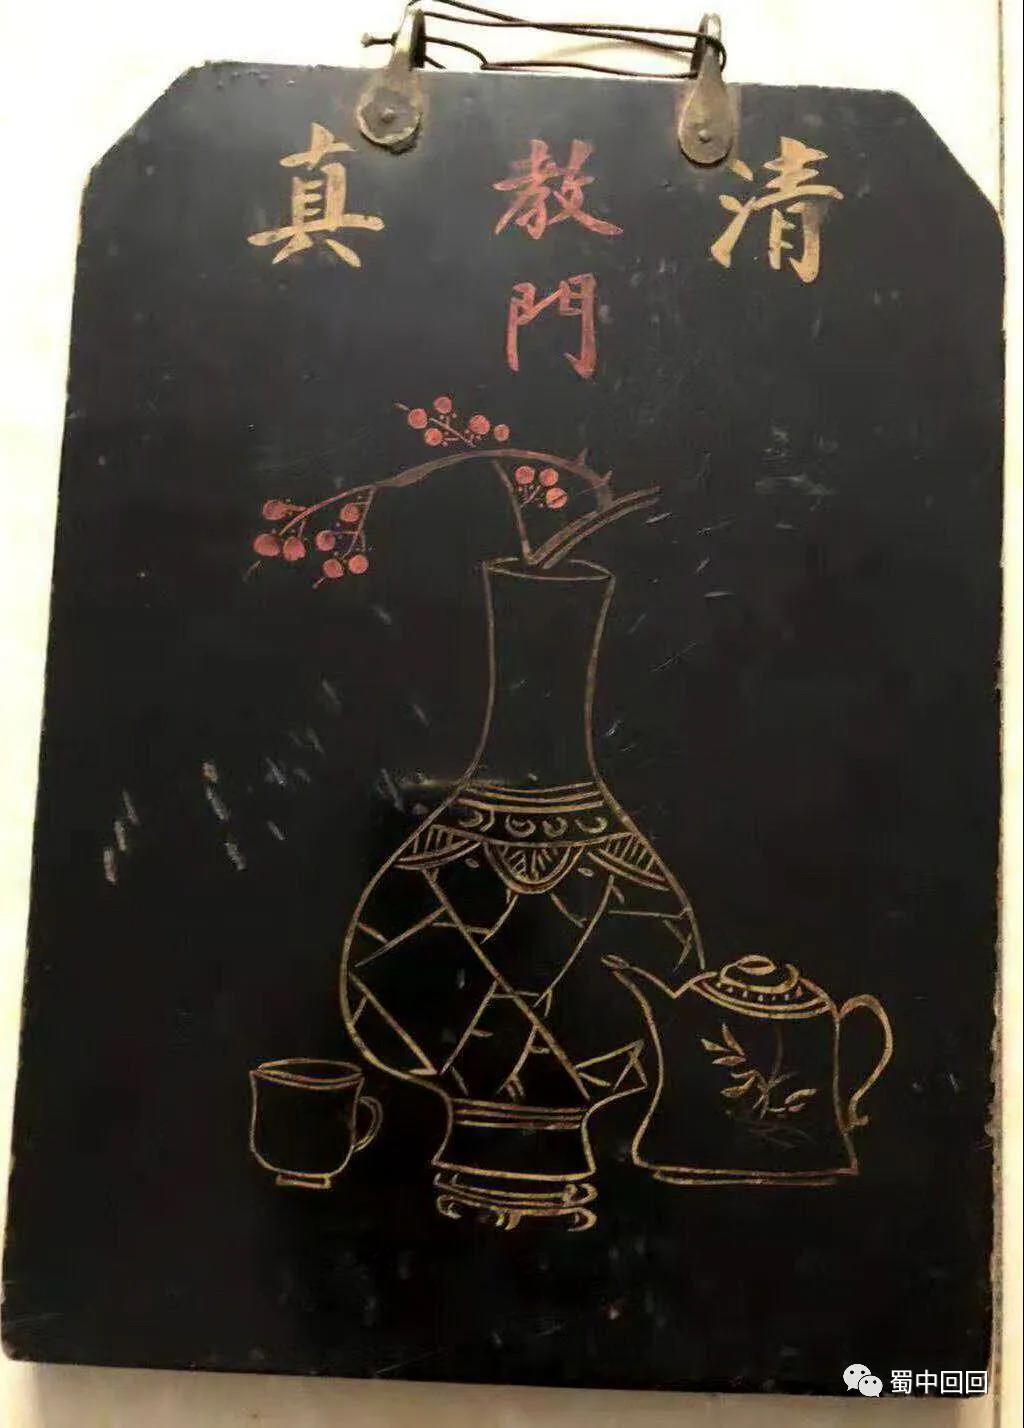 清 真
教
門
蜀中回回